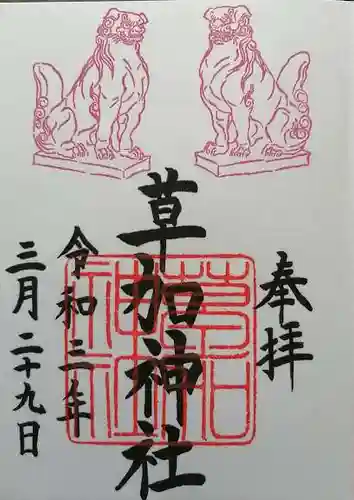 奉拝
草加神社
令和三年
三月二十九日
草加
神社